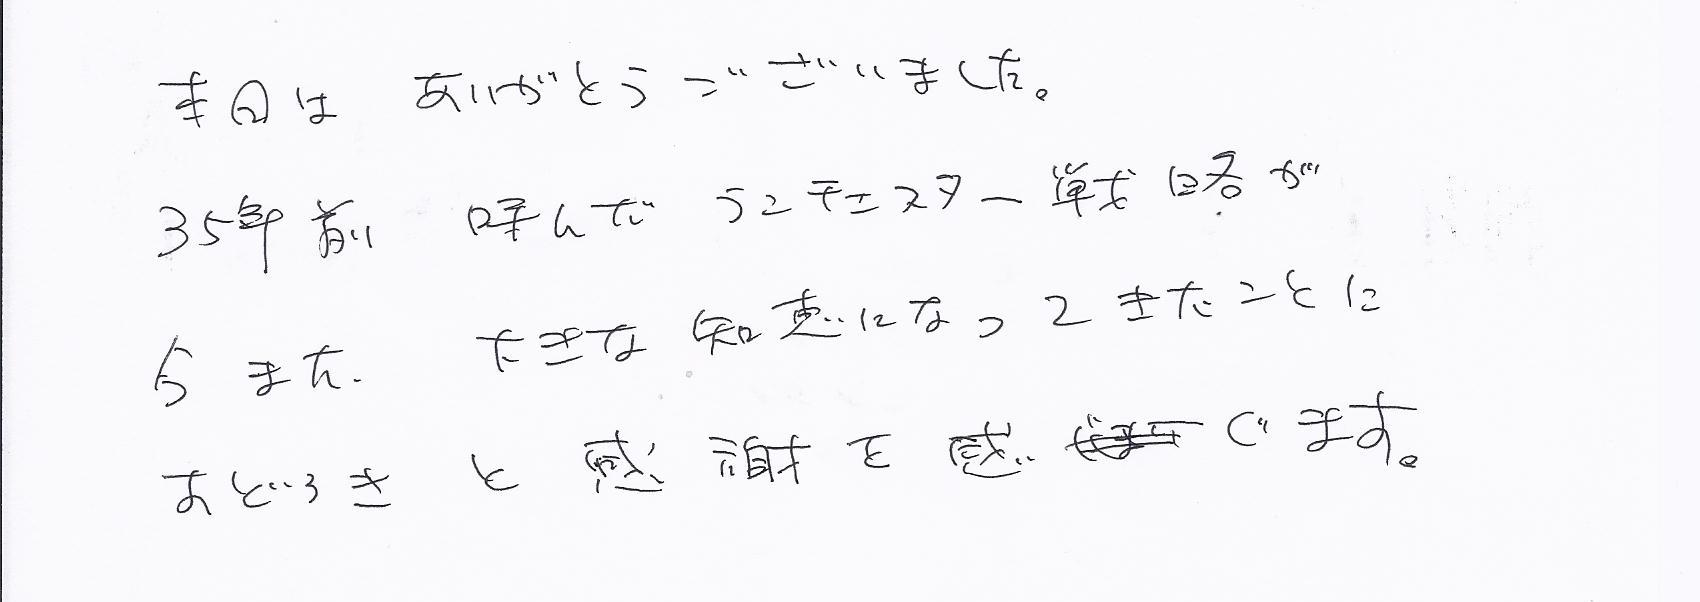 本日は ありがとうございました。
35年前 呼んだ ランチェスター戦略が
今また、大きな知恵になってきたことに
おどろきと感謝を感じます。